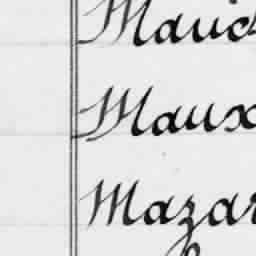 Maud
Maux
Mazar